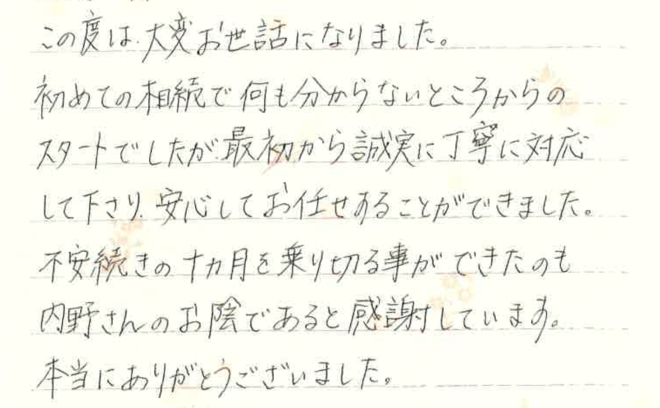 この度は、大変お世話になりました。
初めての相続で何も分からないところからの
スタートでしたが、最初から誠実に丁寧に対応
して下さり、安心してお任せすることができました。
不安続きの十カ月を乗り切る事ができたのも
内野さんのお陰であると感謝しています。
本当にありがとうございました。